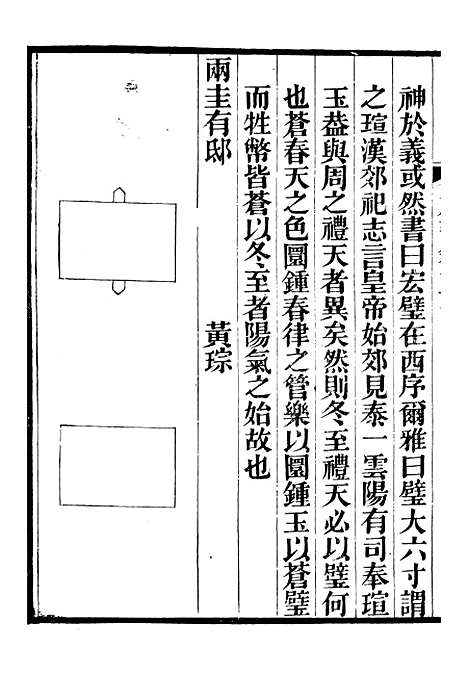 神於義或然書曰宏璧在西序爾雅曰璧大六寸謂
之瑄漢郊祀志言皇帝始郊見泰一雲陽有司奉瑄
玉葢與周之禮天者異矣然則冬至禮天必以璧何
也蒼春天之色圜鍾春律之管樂以圜鍾玉以蒼璧
而牲幣皆蒼以冬至者陽氣之始故也
兩圭有邸
黃琮